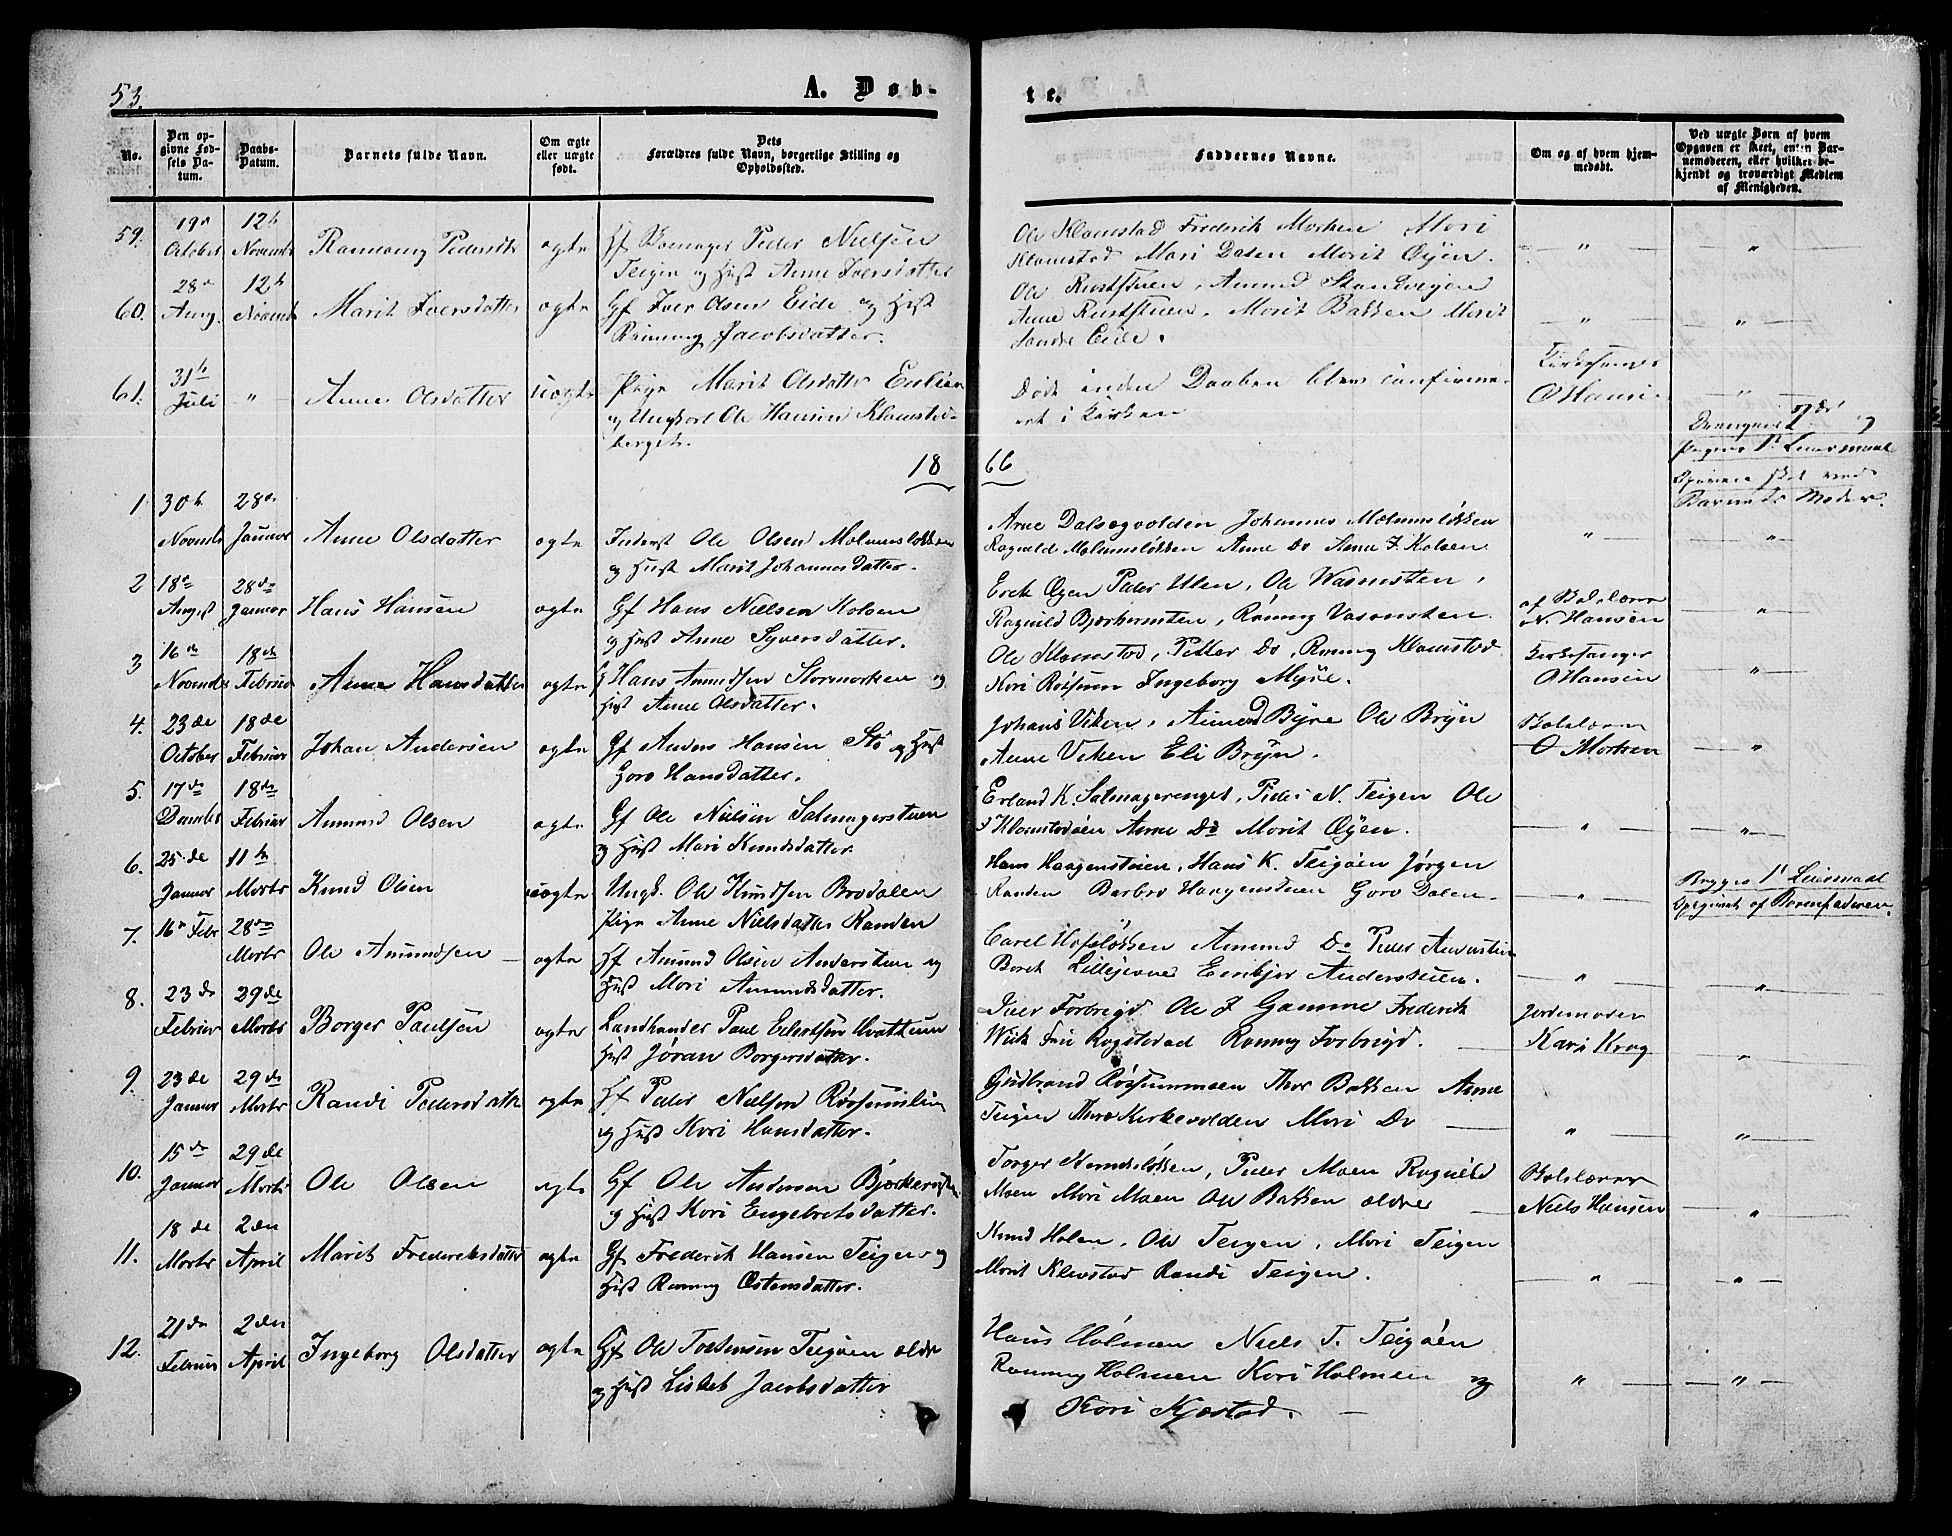 53.
A. Døb-
te.
No.
Den op-
givne Fød-
sels Da-
tum.
Daabs-
Datum.
Barnets fulde Navn.
Om ægte
eller uægte
født.
Dets
Forældres fulde Navn, borgerlige Stilling og
Opholdssted.
Faddernes Navne.
Om og af hvem hjem-
medøbt.
Ved uægte Børn af hvem
Opgaven er skeet, enten Bar-
nemoderen, eller hvilket be-
kjendt og troværdigt Medlem
af Menigheden.
59.
19de October
12te Novembr
ægte
Peder Nielsen
Teigen og Hust Anne Iversdatter
Ole Klomstad Frederik Morken Mari
Klomstad Mari Dalen Marit Øyen.
60.
28de Aug.
12te Novembr
Marit Iversdatter
ægte
Gf Iver Olsen Eide og Hust
Rønnug Jacobsdatter.
Ole Ruststuen, Amund
Anne Ruststuen. Marit Bakken Marit
Søndre Eide.
61.
31te Juli
"
Anne Olsdatter
uægte
Pige Marit Olsdatter Enlien
og Ungkarl Ole Hansen Klomstad-
berget.
Døde inden Daaben blev confirme-
ret i Kirken
Kirkesanger
O Hansen
Barnemoder.
1866
1
30te Novembr
28de Januar
Anne Olsdatter
ægte
Inderst Ole Olsen Molmsløkken
og Hust Marit Johannesdatter.
Arne Dalsegvolden Johannes Molmsløkken
Ragnild Molmsløkken Anne Do Anne J. Kolsen
"
"
2
18de August
28de Januar
Hans Hansen
ægte
Gf Hans Nielsen Holsen
og Hust Anne Syversdatter.
Erik Øyen Peder Ulen, Ole
Ragnild Rønnug
af Skolelærer
N. Hansen
"
3
16de Novembr
18de Februar
Anne Hansdatter
ægte
Hans Amundsen Stormorken og
Hust Anne Olsdatter.
Ole Klomstad, Petter Do, Rønnug Klomstad
Kari Røssum Ingeborg Myre.
Kirkesanger
O Hansen
"
4.
23de October
18de Februar
Johan Andersen
ægte
Gf Anders Hansen Stø og Hust
Goro Hansdatter.
Johans Viken, Amund Byre Ole Bryn
Anne Viken Eli Bryn.
Skolelærer
O Morken
"
5.
17de Decmbr
18de Februar
Amund Olsen
ægte
Gf Ole Nielsen Salmagerstuen
og Hust Mari Knudsdatter.
Erland K. Salmagerenget, Peder N. Teigen Ole
Klomstadøen Anne Do Marit Øyen.
"
"
6.
25de Januar
11te Marts
Knud Olsen
uægte
Ungk. Ole Knudsen Brodalen
Pige Anne Nielsdatter Randen
Hans Haagenstuen, Hans K. Teigøen Jørgen
Randen Barbro Haagenstuen Goro Dalen
"
Begges 1ste Leiermaal
Opgivet af Barnefaderen.
7.
16de Febr
28de Marts
Ole Amundsen
ægte
Gf Amund Olsen Anderstuen og
Hust Mari Amundsdatter.
Carel Hofsløkken Amund Do Peder
Beret Lillejevne Embjør Anderstuen.
"
"
8.
23de Februar
29de Marts
Borger Paulsen
ægte
Landhandler Paul Hvattum
Hust Jøran Borgersdatter.
Iver Forbrigd Ole J Gamme Frederik
Rønnug Forbrigd.
Jordemoder
Kari Krog
"
9.
23de Januar
29de Marts
Randi Pedersdatter
ægte
Gf Peder Nielsen
og Hust Kari Hansdatter.
Gudbrand Thor Bakken Anne
Teigen Thore Kirkevolden Mari Do
"
"
10.
15de Januar
29de Marts
Ole Olsen
ægte
Gf Ole Andersen
og Hust Kari Engebretsdatter.
Torger Peder Moen Ragnild
Moen Mari Moen Ole Bakken ældre
Skolelærer
Niels Hansen
"
11.
18de Marts
2den April
Marit Frederiksdatter
ægte
Gf Frederik Hansen Teigen og
Hust Rønnug Østensdatter.
Knud Holen, Ole Teigen, Mari Teigen
Marit Klevstad Randi Teigen.
"
"
12.
21de Februar
2den April
Ingeborg Olsdatter
ægte
Gf Ole Torstensen Teigøen ældre
og Hust Lisbet Jacobsdatter
Hans Holmen Niels T. Teigøen
Rønnug Holmen Kari Holmen og
Kari Kjæstad.
"
"